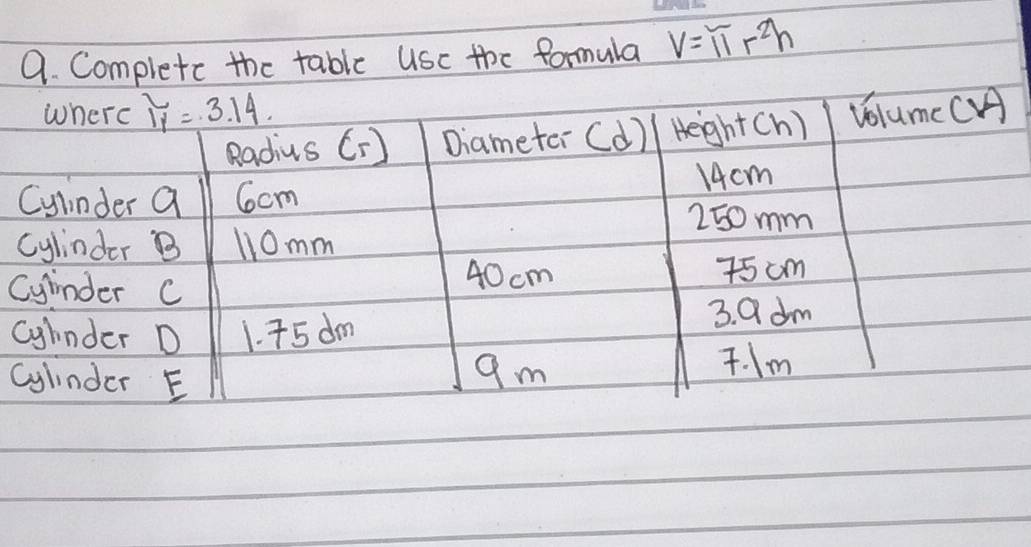 9. Complete the table use the formula V = π r²h
where π = 3.14.
Radius (r) Diameter (d) Height (h) Volume (V)
Cylinder a 6cm 14cm
Cylinder B 110mm 250mm
Cylinder C 40cm 75cm
Cylinder D 1.75dm 3.9dm
Cylinder E 9m 7.1m